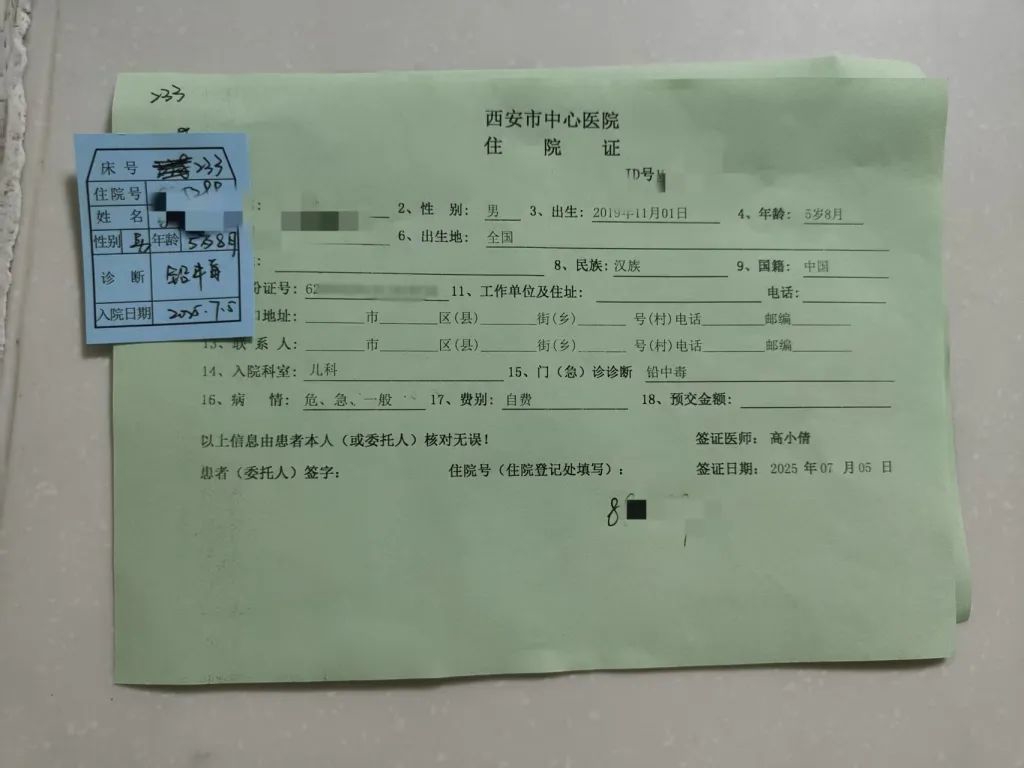 233
西安市中心医院
住 院 证
ID号
床 号 233
住院号
姓 名
性别 男 年龄 5岁8月
诊 断 铅中毒
入院日期 2025.7.5
2、性 别: 男 3、出生: 2019年11月01日 4、年龄: 5岁8月
6、出生地: 全国
8、民族: 汉族 9、国籍: 中国
份证号: 62 11、工作单位及住址: 电话:
口地址: 市 区(县) 街(乡) 号(村)电话 邮编
13、联 系 人: 市 区(县) 街(乡) 号(村)电话 邮编
14、入院科室: 儿科 15、门（急）诊诊断 铅中毒
16、病 情: 危、急、一般 17、费别: 自费 18、预交金额:
以上信息由患者本人（或委托人）核对无误! 签证医师: 高小倩
患者（委托人）签字: 住院号（住院登记处填写）: 签证日期: 2025 年 07 月 05 日
8